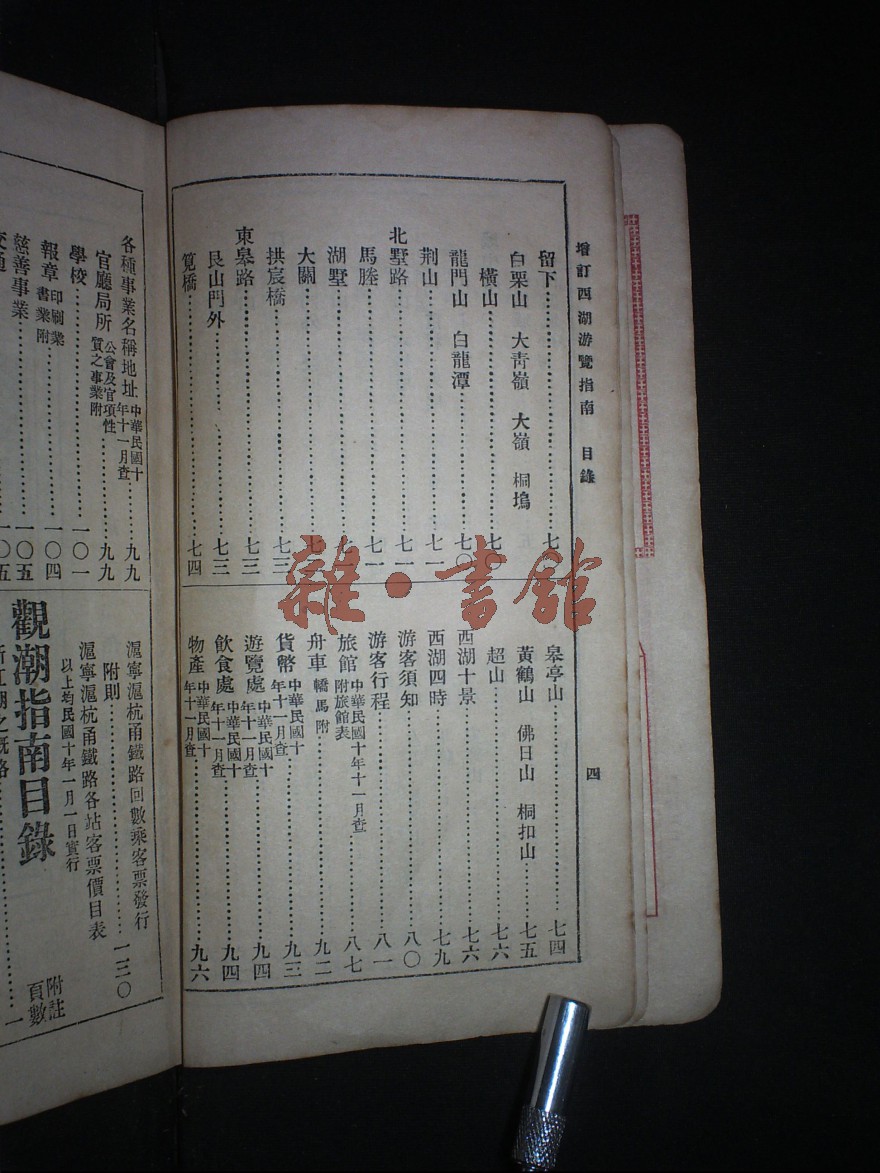 增訂西湖游覽指南 目錄
四
留下 七
白栗山 大青嶺 大嶺 桐塢
橫山 七〇
龍門山 白龍潭 七〇
荆山 七一
北墅路 七一
馬塍 七一
湖墅
大關
拱宸橋 七三
東皋路 七三
艮山門外 七三
筧橋 七四
皋亭山 七四
黃鶴山 佛日山 桐扣山 七五
超山 七六
西湖十景 七六
西湖四時 七九
游客須知 八〇
游客行程 八一
旅館 附旅館表 中華民國十年十一月查 八七
舟車 轎馬附 九二
貨幣 中華民國十年十一月查 九三
遊覽處 中華民國十年十一月查 九四
飲食處 中華民國十年十一月查 九四
物產 中華民國十年十一月查 九六
各種事業名稱地址 中華民國十年十一月查 九九
官廳局所 公會及官項性質之事業附 九九
學校 一〇一
報章 印刷業書業附 一〇四
慈善事業 一〇五
交通 一〇五
滬寧滬杭甬鐵路回數乘客票發行
附則 一三〇
滬寧滬杭甬鐵路各站客票價目表
以上均民國十年一月一日實行
觀潮指南目錄
附註頁數
浙江潮之概略 一
雜·書館